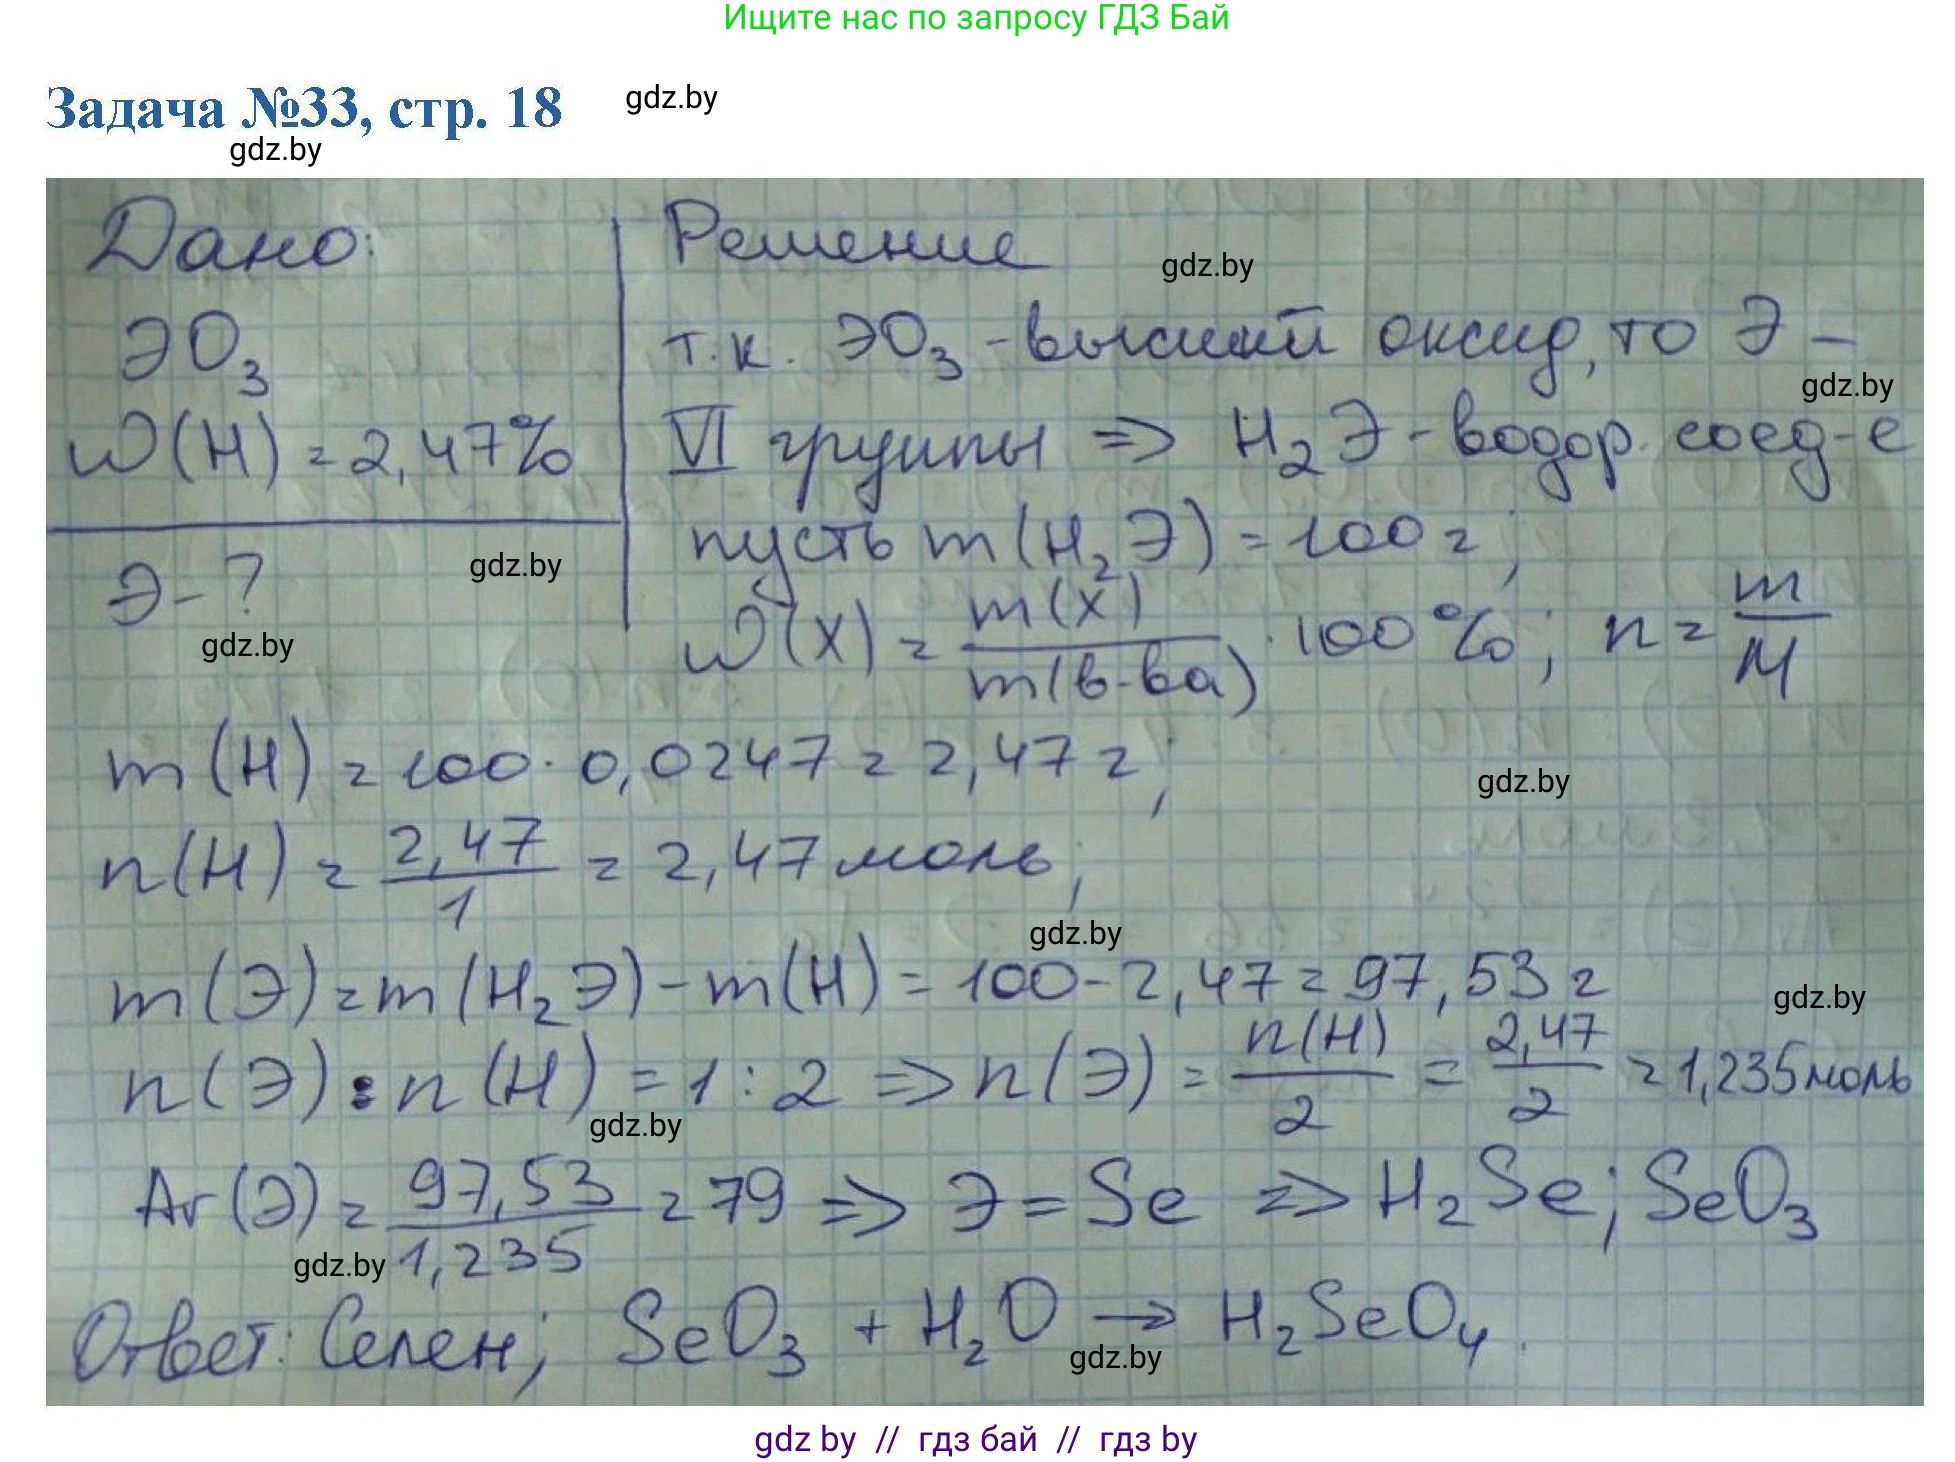 Ищите нас по запросу ГДЗ Бай
Задача №33, стр. 18
gdz.by
gdz.by
Дано:
ЭO₃
W(H) = 2,47%
Э - ?
gdz.by
gdz.by
Решение
gdz.by
т.к. ЭO₃ - высший оксид, то Э -
gdz.by
VI группы => H₂Э - водор. соед-е
пусть m(H₂Э) = 100 г;
W(X) = m(X)/m(в-ва) · 100%; n = m/M
m(H) = 100 · 0,0247 = 2,47 г;
gdz.by
n(H) = 2,47/1 = 2,47 моль;
gdz.by
m(Э) = m(H₂Э) - m(H) = 100 - 2,47 = 97,53 г
gdz.by
n(Э) : n(H) = 1 : 2 => n(Э) = n(H)/2 = 2,47/2 = 1,235 моль
gdz.by
Ar(Э) = 97,53/1,235 = 79 => Э = Se => H₂Se; SeO₃
gdz.by
Ответ: Селен; SeO₃ + H₂O → H₂SeO₄.
gdz.by
gdz by // гдз бай // гдз by